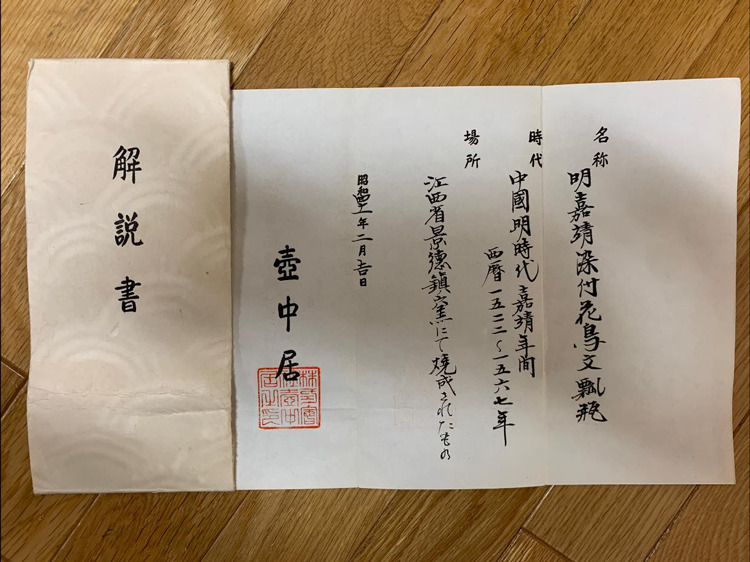 解説書
名称
明嘉靖染付花鳥文瓢瓶
時代
中國明時代嘉靖年間
西暦一五二二〜一五六七年
場所
江西省景德鎮窯にて焼成されたもの
昭和四十一年二月吉日
壺中居
株式會
社壺中
居之印